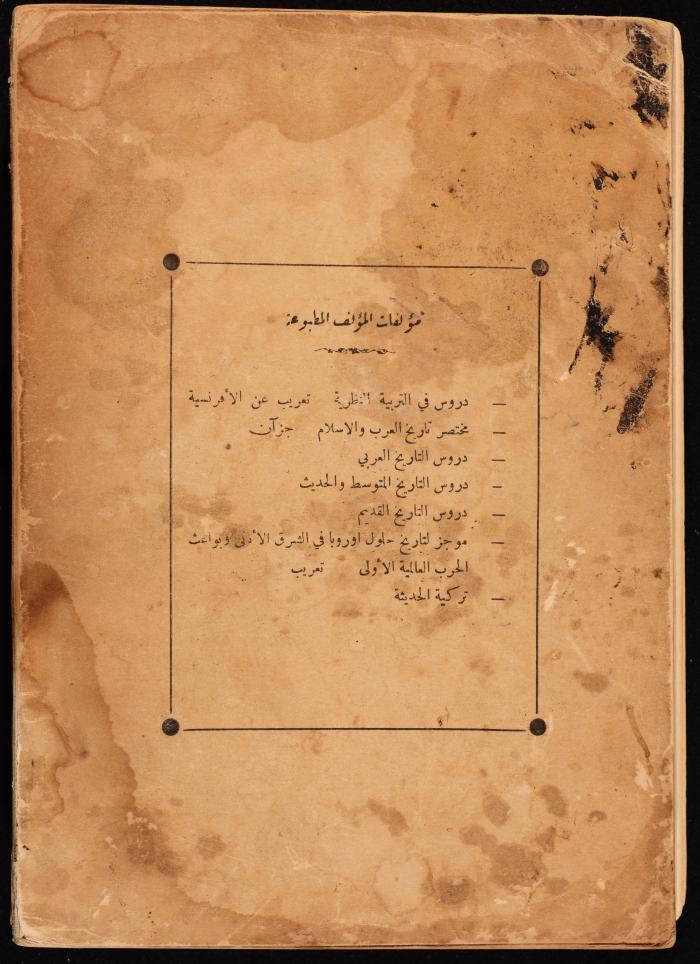 مؤلفات المؤلف المطبوعة
— دروس في التربية النظرية تعريب عن الأفرنسية
— مختصر تاريخ العرب والاسلام جزآن
— دروس التاريخ العربي
— دروس التاريخ المتوسط والحديث
— دروس التاريخ القديم
— موجز لتاريخ حلول اوروبا في الشرق الأدنى وبواعث
الحرب العالمية الأولى تعريب
— تركية الحديثة